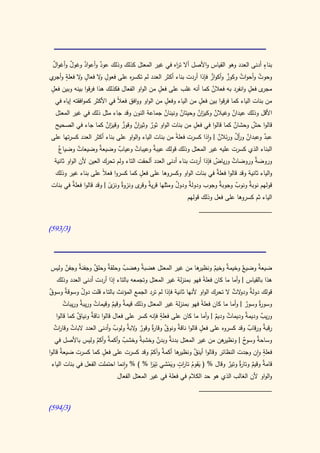 بناء أدنى العدد وهو القياس والأصل ألا تراه في غير المعتل كذلك وذلك عودٌ وأعوادٌ وغولٌ وأغوالٌ
وحوتٌ وأحواتٌ وكوزٌ وأكوازٌ فإذا أردت بناء أكثر العدد لم تكسره على فعولٍ ولا فعالٍ ولا فعلةٍ وأجري
مجرى فعلٍ وانفرد به فعلانٌ كما أنه غلب على فعلٍ من الواو الفعال فكذلك هذا فرقوا بينه وبين فعلٍ
من بنات الياء كما فرقوا بين فعلٍ من الياء وفعلٍ من الواو ووافق فعلاً في الأكثر كموافقته إياه في
الأقل وذلك عيدانٌ وغيلانٌ وكيزانٌ وحيتانٌ ونينانٌ جماعة النون وقد جاء مثل ذلك في غير المعتل
قالوا حشٌّ وحشانٌ كما قالوا في فعلٍ من بنات الواو ثورٌ وثيرانٌ وقوزٌ وقيزانٌ كما جاء في الصحيح
عبدٌ وعبدانٌ ورألٌ ورئلانٌ | وإذا كسرت فعلة من بنات الياء والواو على بناء أكثر العدد كسرتها على
البناء الذي كسرت عليه غير المعتل وذلك قولك عيبةٌ وعيباتٌ وعيابٌ وضيعةٌ وضيعاتٌ وضياعٌ
وروضةٌ وروضاتٌ ورياضٌ فإذا أردت بناء أدنى العدد ألحقت التاء ولم تحرك العين لأن الواو ثانية
والياء ثانية وقد قالوا فعلةٌ في بنات الواو وكسروها على فعلٍ كما كسروا فعلاً على بناء غير وذلك
قولهم نوبةٌ ونوبٌ وجوبةٌ وجوب ودولةٌ ودولٌ ومثلها قريةٌ وقرى ونزوةٌ ونزىً | وقد قالوا فعلةٌ في بنات
الياء ثم كسروها على فعلٍ وذلك قولهم
(593/3)
ضيعةٌ وضيعٌ وخيمةٌ وخيمٌ ونظيرها من غير المعتل هضبةٌ وهضبٌ وحلقةٌ وحلقٌ وجفنةٌ وجفنٌ وليس
هذا بالقياس | وأما ما كان فعلةً فهو بمنزلة غير المعتل وتجمعه بالتاء إذا أردت أدنى العدد وذلك
قولك دولةٌ ودولاتٌ لا تحرك الواو لأنها ثانية فإذا لم ترد الجمع المؤنث بالتاء قلت دولٌ وسوقةٌ وسوقٌ
وسورةٌ وسورٌ | وأما ما كان فعلةً فهو بمنزلة غير المعتل وذلك قيمةٌ وقيمٌ وقيماتٌ وريبةٌ وريباتٌ
وريبٌ وديمةٌ وديماتٌ وديمٌ | وأما ما كان على فعلةٍ فإنه كسر على فعال قالوا ناقةٌ ونياقٌ كما قالوا
رقبةٌ ورقابٌ وقد كسروه على فعلٍ قالوا ناقةٌ ونوقٌ وقارةٌ وقورٌ ولابةٌ ولوبٌ وأدنى العدد لاباتٌ وقاراتٌ
وساحةٌ وسوحٌ | ونظيرهن من غير المعتل بدنةٌ وبدنٌ وخشبةٌ وخشبٌ وأكمةٌ وأكمٌ وليس بالأصل في
فعلةٍ وإن وجدت النظائر وقالوا أينقٌ ونظيرها أكمةٌ وآكمٌ وقد كسرت على فعلٍ كما كسرت ضيعةٌ قالوا
قامةٌ وقيمٌ وتارةٌ وتيرٌ وقال % ( يَقومُ تاراتٍ ويَمْشي تِيَرَا % ( % وإنما احتملت الفعل في بنات الياء
والواو لأن الغالب الذي هو حد الكلام في فعلة في غير المعتل الفعال
(594/3)